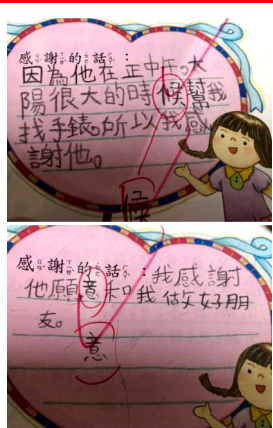 感謝的話：
因為他在正中午。太
陽很大的時候幫我
找手錶。所以我感
謝他。
候
感謝的話：我感謝
他願意和我做好朋
友。
意